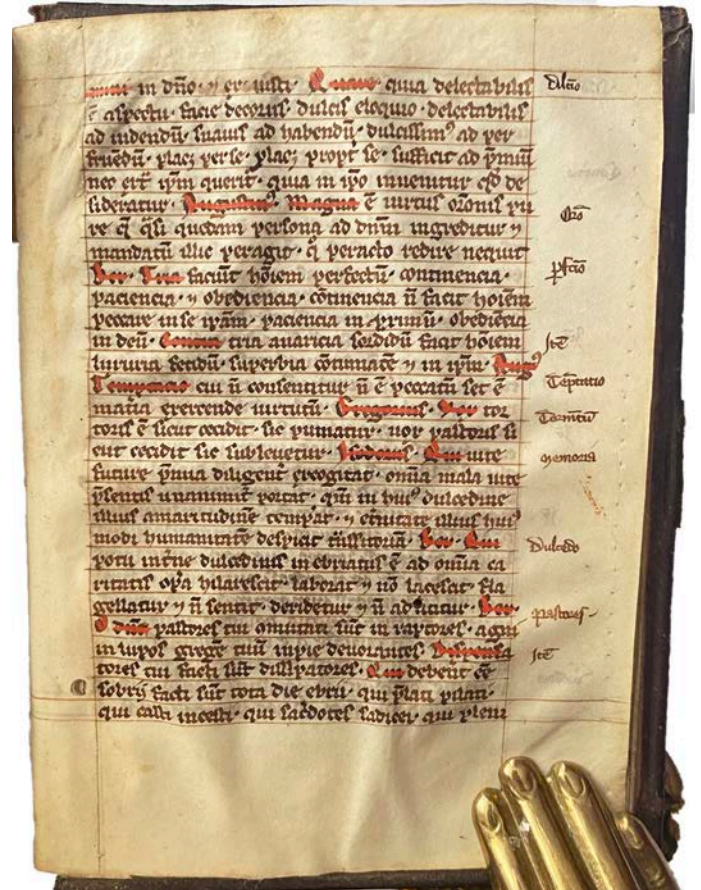 in dn̄o · ⁊ Quare quia delectabilis
ē aspectu · facie decorus · dulcis eloquio · delectabilis
ad uidendū · suauis ad habendū · dulcissimꝰ ad per
fruendū · placꝫ per se · placꝫ propt̄ se · sufficit ad p̄miū
nec ip̄m querit · quia in ip̄o inuenitur de
sideratur · Augustinꝰ · Magna ē uirtus or̄onis pu
re q̄ q̄si quedam persona ad dn̄m ingreditur ⁊
mandatū illic peragit · q̄ peracto redire nequit
Ber · Tria faciūt hoīem perfectū · continencia ·
paciencia · ⁊ obediencia · cōtinencia n̄ facit hoīem
peccare in se ip̄m · paciencia in p̄ximū · obediēcia
in deū · Contra tria auaricia sordidū facit hoīem
luxuria fetidū · superbia ⁊ Augꝰ
Temptacio cui n̄ consentitur n̄ ē peccatū set ē
mat̄ia exercende uirtutū · Gregorius · Uox
ē sicut occidit · sic puniatur · uox pastoris si
cut occidit sic subleuetur · Isidorus · Qui uite
future p̄mia diligent̄ excogitat · om̄ia mala uite
p̄sentis portat · qm̄ in huiꝰ dulcedine
illius amaritudinē temp̄at · ⁊ et̄nitate illius huiꝰ
modi despicit t̄nsitoriā · Ber · Qui
potu int̄ne dulcedinis inebriatus ē ad om̄ia ca
ritatis op̄a hilarescit · laborat ⁊ nō lacescit · fla
gellatur ⁊ n̄ sentit · deridetur ⁊ n̄ · Ber ·
O dn̄e pastores tui mutati sūt in raptores · agni
in lupos gregē tuū inpie deuorantes · Dispensa
tores tui facti sūt dissipatores · Qui debent ēē
sobrij facti sūt tota die ebrij · qui p̄lati pilati ·
qui casti incesti · qui sac̄dotes qui pleni
Dilcīo
Or̄o
ꝑfcīo
Itē
Tēptatio
Memoria
Dulcedo
Pastores
Itē